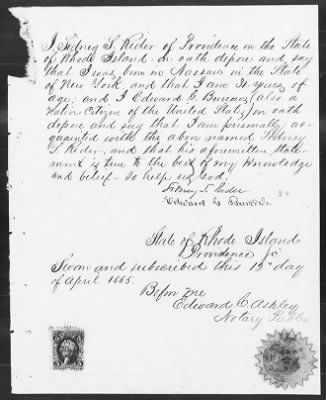 I, Sidney S. Rider of Providence in the State
of Rhode Island. on oath depose and say
that I was born in Nassau in the State
of New York, and that I am 31 years of
age; and I Edward G. Burrows (also a
native citizen of the United States) on oath
depose and say that I am personally ac-
quainted with the above named Sidney
S. Rider, and that his aforewritten state-
ment is true to the best of my knowledge
and belief. So help us God.
Sidney S. Rider
Edward G. Burrows
State of Rhode Island
Providence Sc
Sworn and subscribed this 12 day
of April 1865.
Before me
Edward C. Ashley
Notary Public